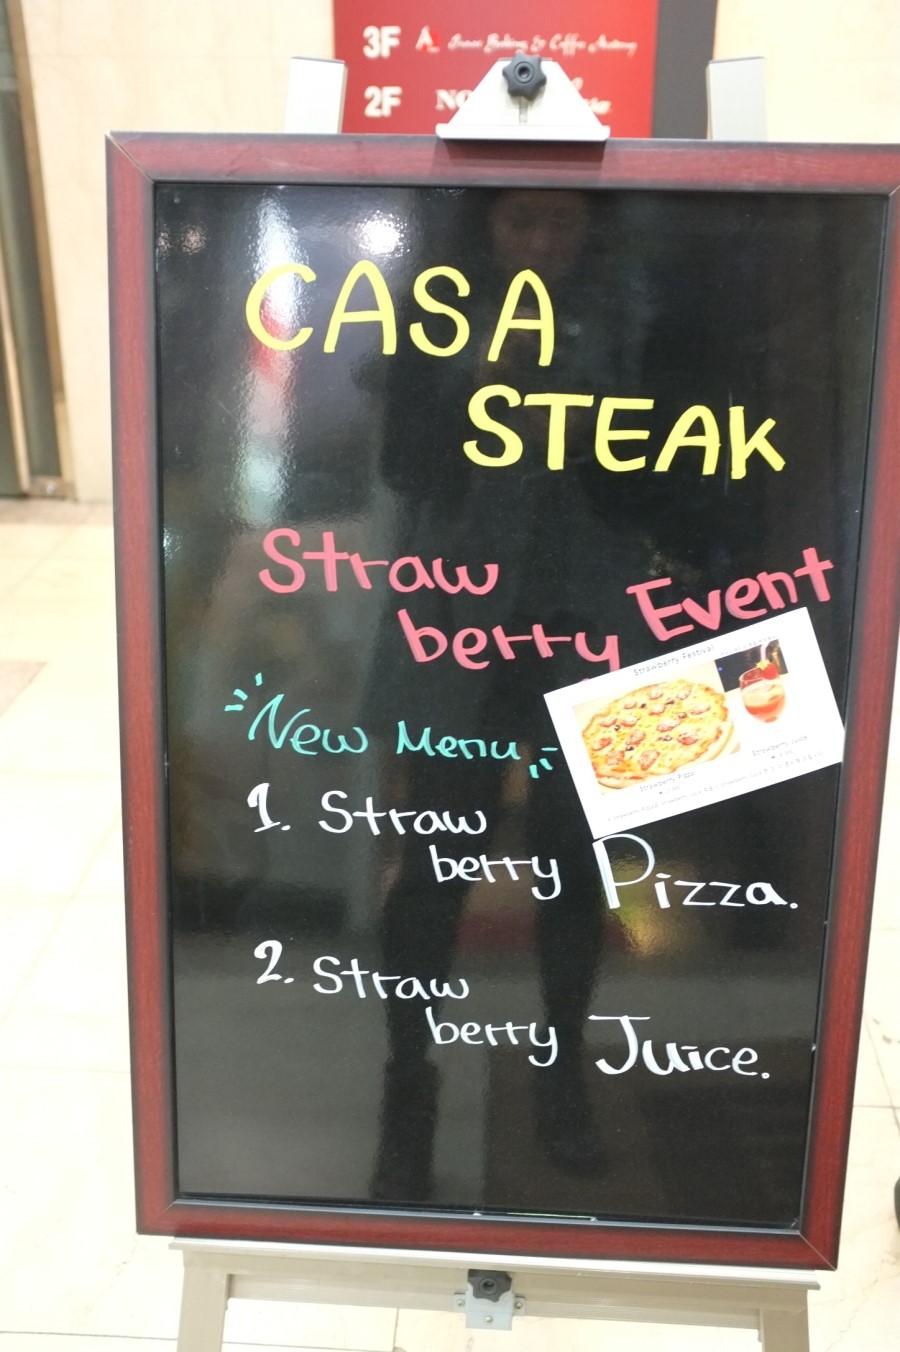 3F
2F NO
CASA
STEAK
Straw
berry Event
New Menu
1. Straw
berry Pizza.
2. Straw
berry Juice.
Strawberry Festival
Strawberry Pizza
Strawberry Juice